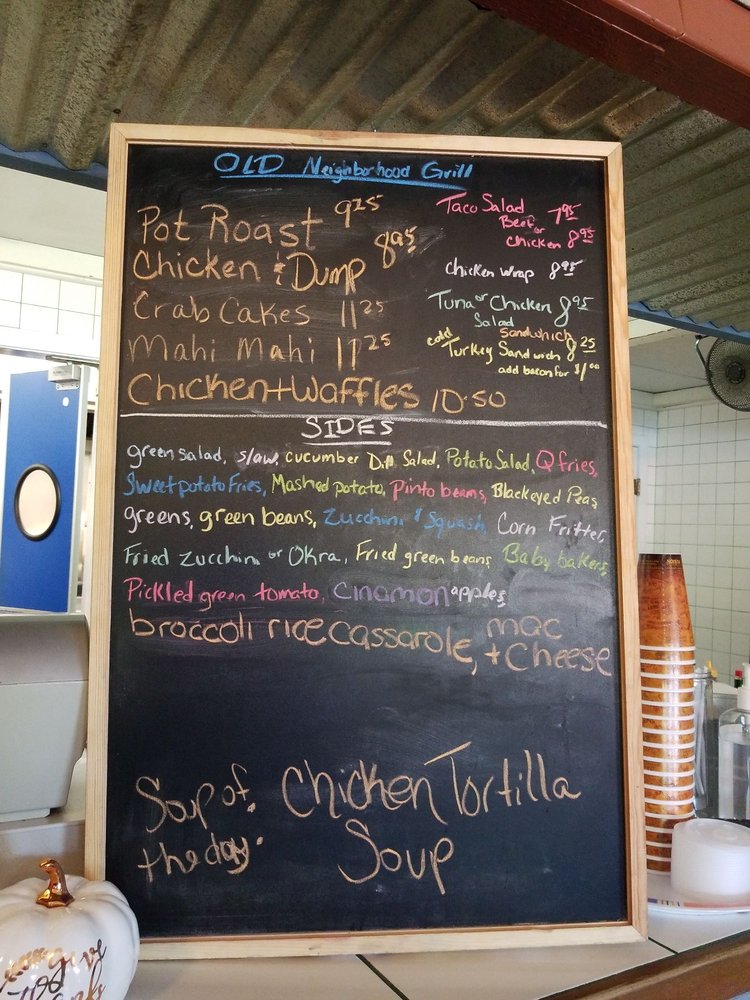 OLD Neighborhood Grill
Pot Roast 9.25
Chicken & Dump 8.95
Crab Cakes 11.25
Mahi Mahi 11.25
Chicken + Waffles 10.50
Taco Salad 7.95
Beef or
Chicken 8.95
Chicken Wrap 8.95
Tuna or Chicken 8.95
Salad Sandwhich
cold Turkey Sandwich 8.25
add bacon for $1.00
SIDES
green salad, slaw, cucumber Dill Salad, Potato Salad, Q fries,
Sweet potato Fries, Mashed potato, Pinto beans, Blackeyed Peas
greens, green beans, Zucchini & Squash, Corn Fritter,
Fried Zucchini or Okra, Fried green beans Baby bakers,
Pickled green tomato, Cinamon apples,
broccoli rice cassarole, mac
+ Cheese
Soup of Chicken Tortilla
the day. Soup
give